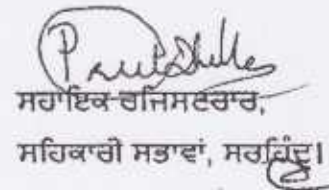 ਸਹਾਇਕ ਰਜਿਸਟਰਾਰ,
ਸਹਿਕਾਰੀ ਸਭਾਵਾਂ, ਸਰਹਿੰਦ।